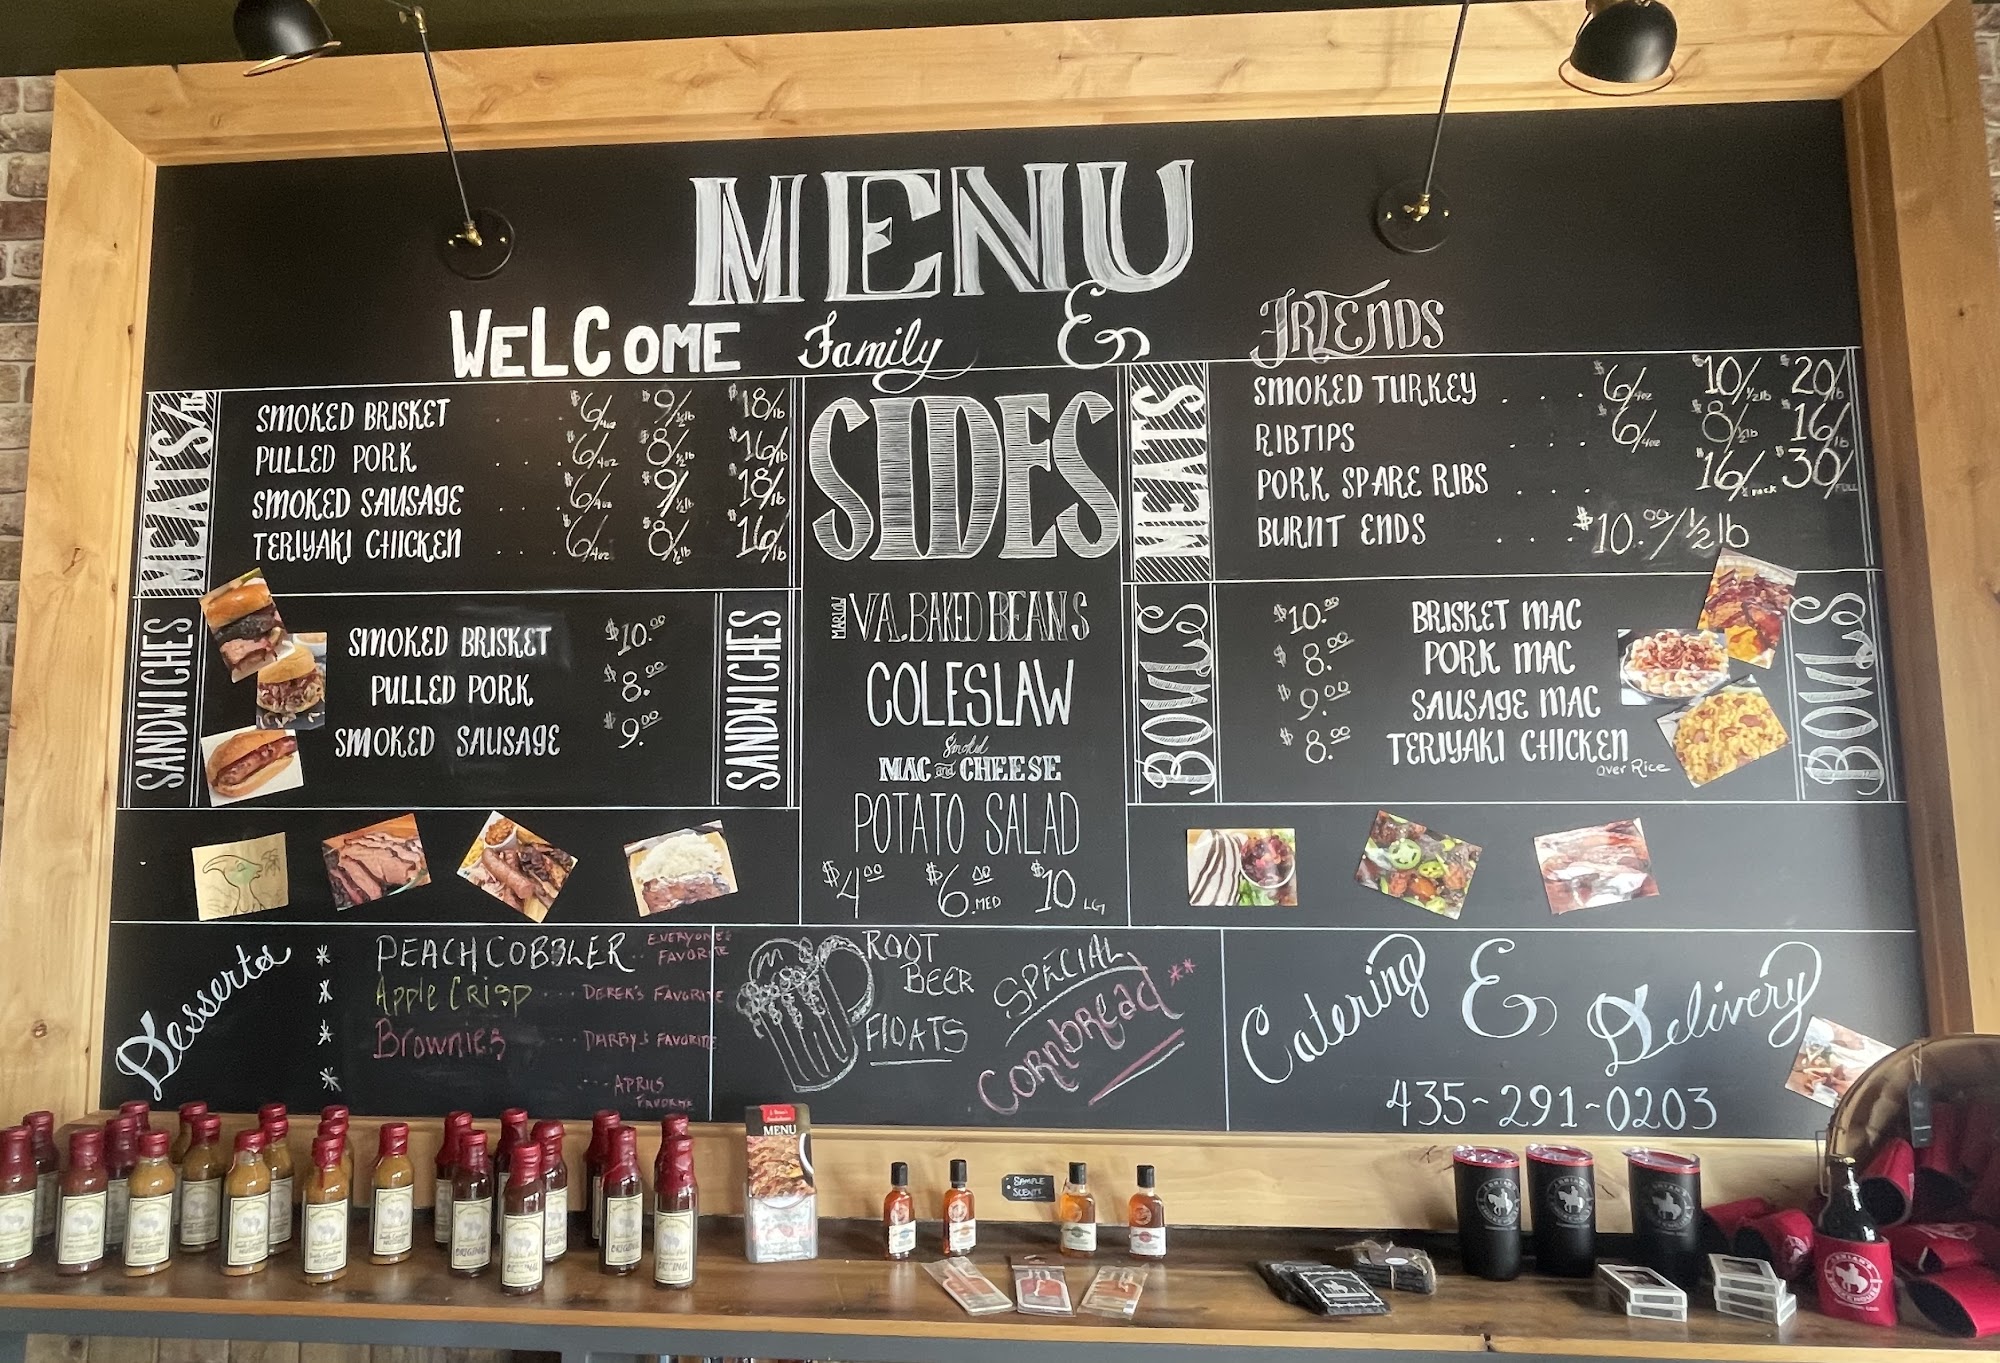 MENU
WELCOME Family & FRIENDS
MEATS/lb
SMOKED BRISKET . . . $6/4oz $9/½lb $18/lb
PULLED PORK . . . $6/4oz $8/½lb $16/lb
SMOKED SAUSAGE . . . $6/4oz $9/½lb $18/lb
TERIYAKI CHICKEN . . . . $6/4oz $8/½lb $16/lb
SANDWICHES
SMOKED BRISKET $10.00
PULLED PORK $8.00
SMOKED SAUSAGE $9.00
SANDWICHES
SIDES
VA. BAKED BEANS
COLESLAW
Smoked
MAC and CHEESE
POTATO SALAD
$4.00 $6.00 MED $10 LG
MEATS
SMOKED TURKEY . . . $6/4oz $10/½lb $20/lb
RIBTIPS . . . $6/4oz $8/½lb $16/lb
PORK SPARE RIBS . . . $16/½ RACK $30/FULL
BURNT ENDS . . . $10.00/½lb
BOWLS
$10.00 BRISKET MAC
$8.00 PORK MAC
$9.00 SAUSAGE MAC
$8.00 TERIYAKI CHICKEN
over Rice
BOWLS
Desserts
* PEACH COBBLER .. EVERYONE'S FAVORITE
* Apple Crisp .... DEREK'S FAVORITE
* Brownies ... DARBY'S FAVORITE
* ... APRILS FAVORITE
ROOT
BEER
FlOATS
SPECIAL
Cornbread **
Catering & Delivery
435-291-0203
MENU
SAMPLE
SCENTS
ORIGINAL